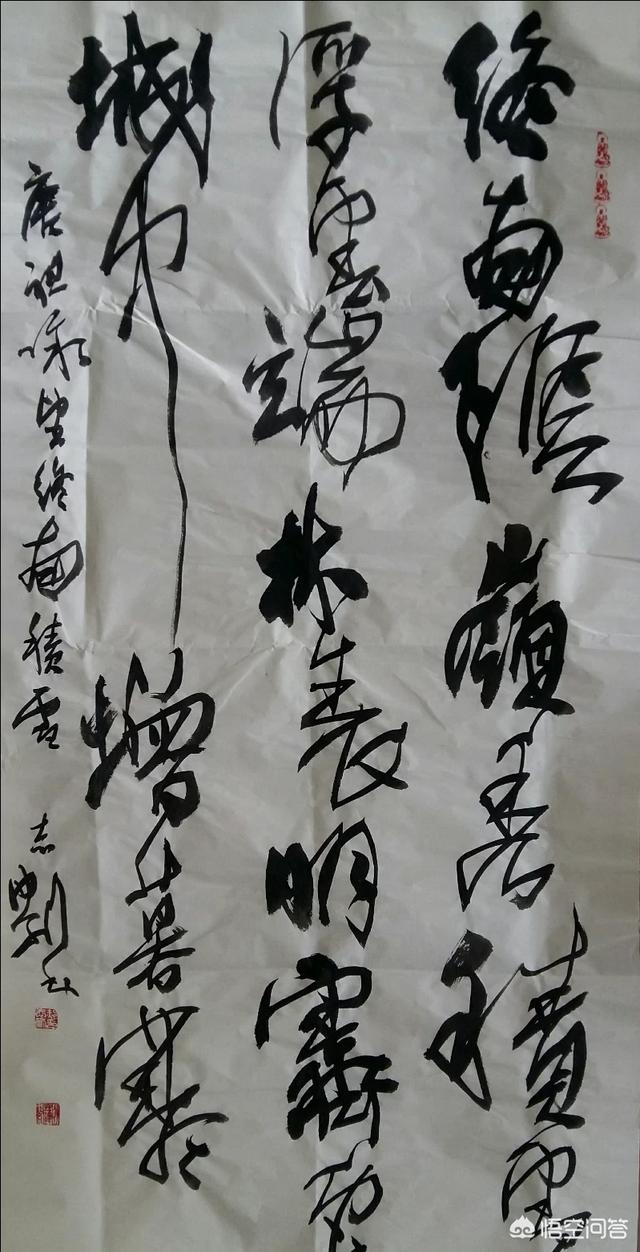 终南阴岭秀积雪
浮云端林表明霁色
城中增暮寒
唐祖咏望终南积雪 志刚书
悟空问答